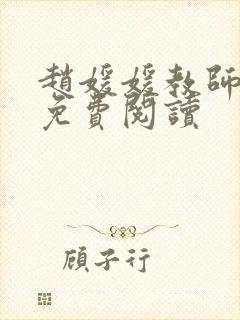 趙媛媛教師
免費閱讀
顧子行